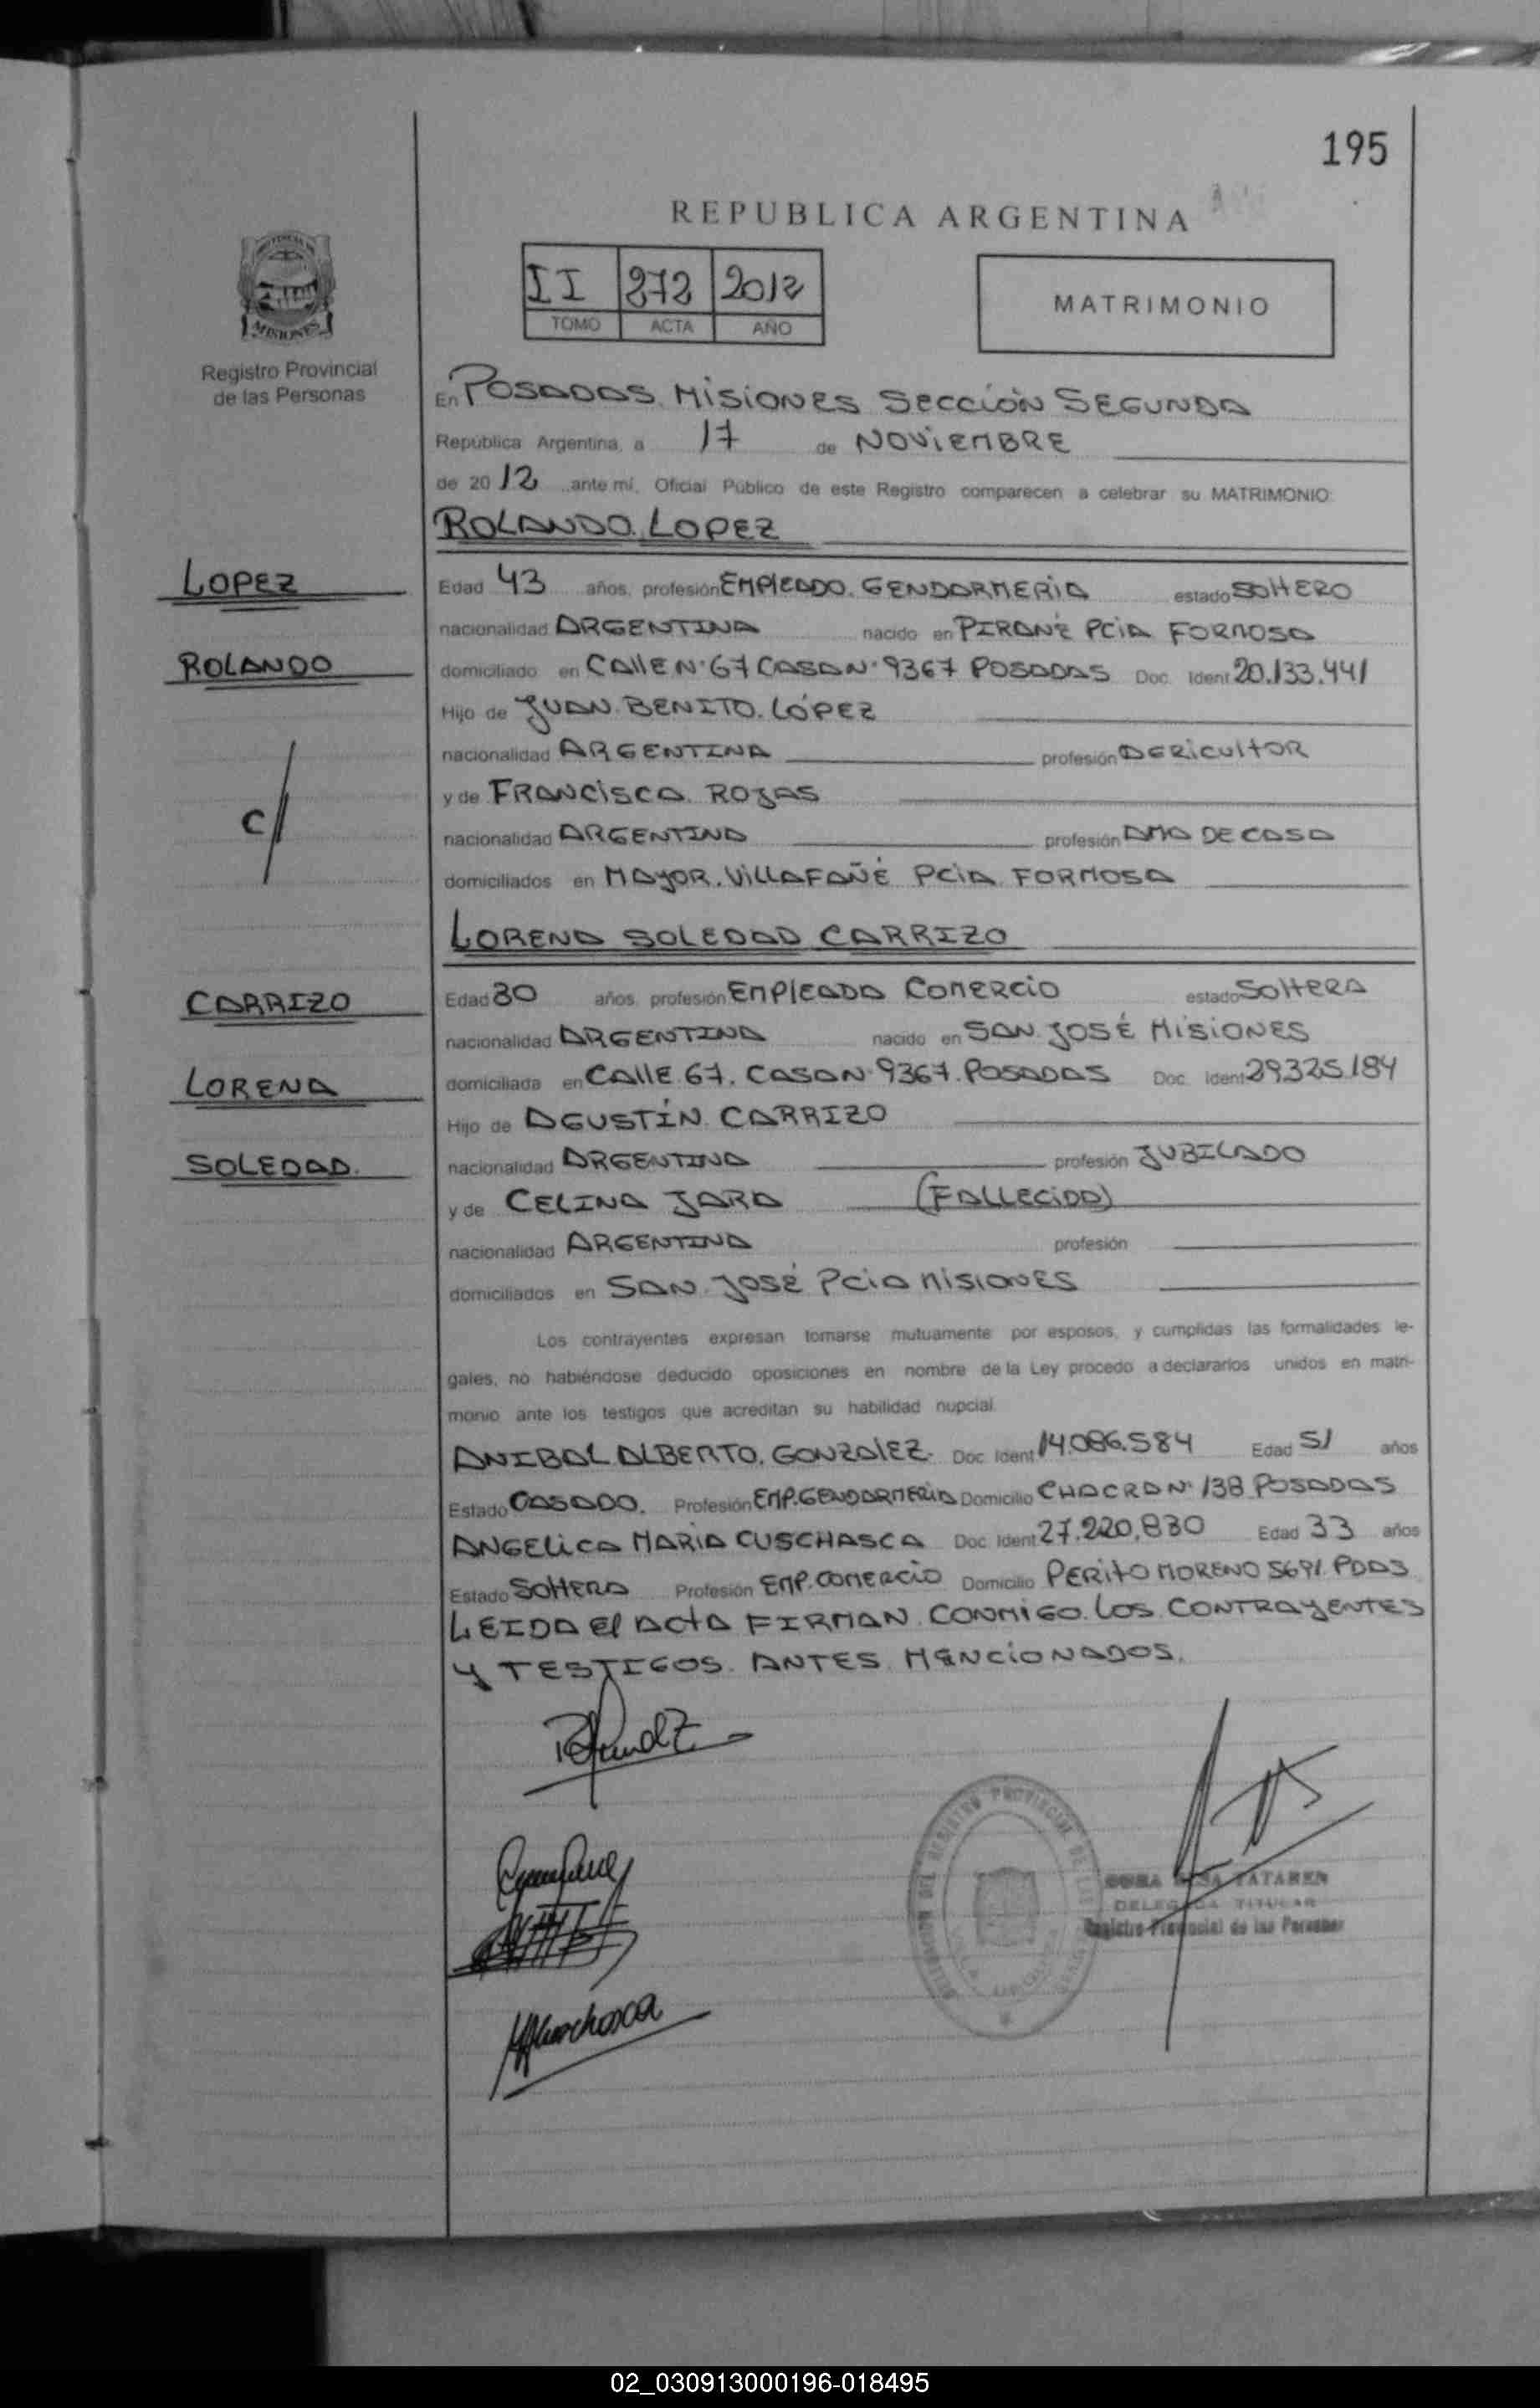 195
REPUBLICA ARGENTINA
II 272 2012
TOMO ACTA AÑO
MATRIMONIO
MISIONES
Registro Provincial
de las Personas
En POSADAS. MISIONES SECCIÓN SEGUNDA
República Argentina, a 17 de NOVIEMBRE
de 2012 ante mí, Oficial Público de este Registro comparecen a celebrar su MATRIMONIO:
ROLANDO LOPEZ
LOPEZ
Edad 43 años, profesión EMPLEADO. GENDARMERIA estado SOLTERO
nacionalidad ARGENTINA nacido en PIRANÉ PCIA FORMOSA
ROLANDO
domiciliado en CALLE N° 67 CASA N° 9367 POSADAS Doc. Ident 20.133.441
Hijo de JUAN BENITO. LÓPEZ
nacionalidad ARGENTINA profesión AGRICULTOR
y de FRANCISCA ROJAS
c/
nacionalidad ARGENTINA profesión AMA DE CASA
domiciliados en MAYOR. VILLAFAÑE PCIA FORMOSA
LORENA SOLEDAD CARRIZO
CARRIZO
Edad 30 años, profesión EMPLEADA COMERCIO estado SOLTERA
nacionalidad ARGENTINA nacido en SAN JOSÉ MISIONES
LORENA
domiciliada en CALLE 67. CASA N° 9367. POSADAS Doc. Ident 29325.184
Hijo de AGUSTÍN CARRIZO
SOLEDAD.
nacionalidad ARGENTINA profesión JUBILADO
y de CELINA JARA (FALLECIDA)
nacionalidad ARGENTINA profesión
domiciliados en SAN JOSÉ PCIA MISIONES
Los contrayentes expresan tomarse mutuamente por esposos, y cumplidas las formalidades le-
gales, no habiéndose deducido oposiciones en nombre de la Ley procedo a declararlos unidos en matri-
monio ante los testigos que acreditan su habilidad nupcial.
ANIBAL ALBERTO. GONZALEZ. Doc. Ident 14.086.584 Edad 51 años
Estado CASADO. Profesión EMP. GENDARMERIA Domicilio CHACRA N° 138 POSADAS
ANGELICA MARIA CUSCHASCA Doc. Ident 27.220.830 Edad 33 años
Estado SOLTERA Profesión EMP. COMERCIO Domicilio PERITO MORENO 5691 PDAS
LEIDA EL ACTA FIRMAN CONMIGO LOS CONTRAYENTES
Y TESTIGOS ANTES MENCIONADOS.
DELEGADA TITULAR
Registro Provincial de las Personas
02_030913000196-018495